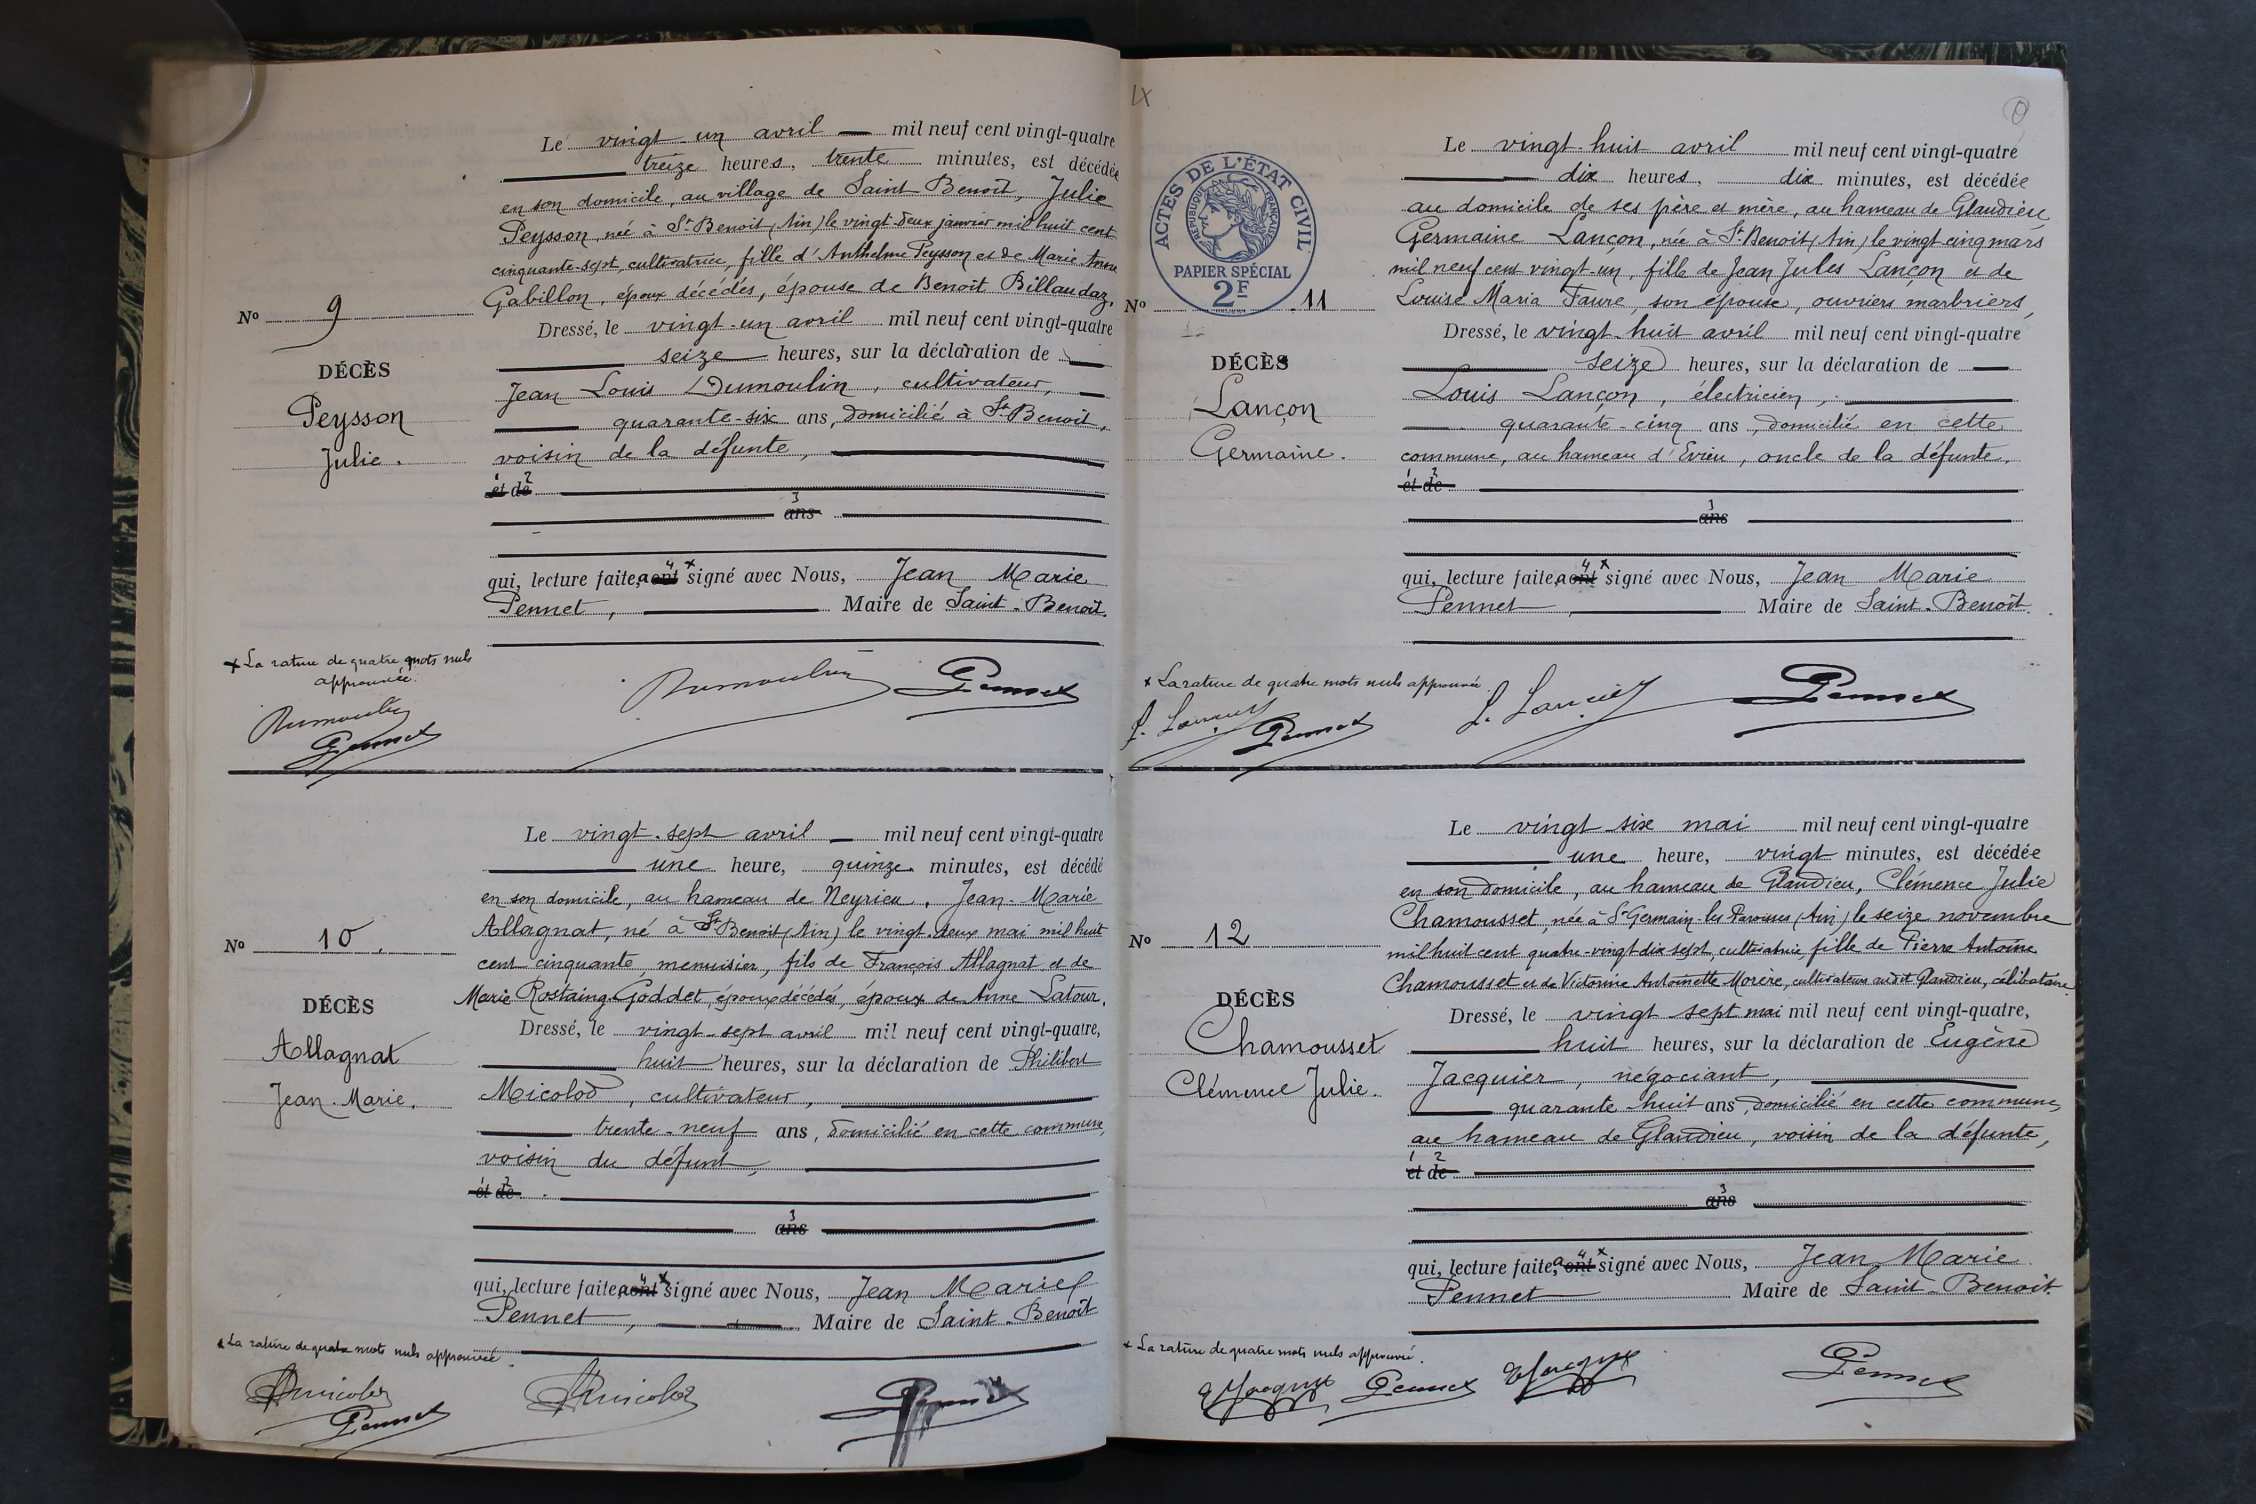 Le vingt-un avril mil neuf cent vingt-quatre
treize heures, trente minutes, est décédée
en son domicile, au village de Saint Benoît, Julie
Peysson, née à St Benoit (Ain) le vingt-deux janvier mil huit cent
cinquante-sept, cultivatrice, fille d'Anthelme Peysson et de Marie Anne
Gabillon, époux décédés, épouse de Benoit Billaudaz.
No 9
Dressé, le vingt-un avril mil neuf cent vingt-quatre
seize heures, sur la déclaration de
DÉCÈS
Jean Louis Dumoulin, cultivateur,
Peysson
quarante-six ans, domicilié à St Benoit,
Julie.
voisin de la défunte,
1 2
et de
3
ans
4 x
qui, lecture faite, a ont signé avec Nous, Jean Marie
Pennet, Maire de Saint-Benoît.
x La rature de quatre mots nuls
approuvée.
Dumoulin Pennet
Dumoulin
Pennet
Le vingt-sept avril mil neuf cent vingt-quatre
une heure, quinze minutes, est décédé
en son domicile, au hameau de Neyrieu, Jean-Marie
Allagnat, né à St Benoit (Ain) le vingt-deux mai mil huit
No 10.
cent cinquante, menuisier, fils de François Allagnat et de
Marie Rostaing-Goddet, époux décédés, époux de Anne Latour.
DÉCÈS
Dressé, le vingt-sept avril mil neuf cent vingt-quatre,
Allagnat
huit heures, sur la déclaration de Philibert
Jean-Marie.
Micolod, cultivateur,
trente-neuf ans, domicilié en cette commune,
voisin du défunt,
1 2
et de
3
ans
4 x
qui, lecture faite, a ont signé avec Nous, Jean Marie
Pennet, Maire de Saint-Benoît
x La rature de quatre mots nuls approuvée.
Pennet
Pennet
IX
0
ACTES DE L'ÉTAT CIVIL
RÉPUBLIQUE FRANÇAISE
PAPIER SPÉCIAL
2F
Le vingt-huit avril mil neuf cent vingt-quatre
dix heures, dix minutes, est décédée
au domicile de ses père et mère, au hameau de Glandieu
Germaine Lançon, née à St Benoit (Ain) le vingt-cinq mars
mil neuf cent vingt-un, fille de Jean Jules Lançon et de
No 11
Louise Maria Faure, son épouse, ouvriers marbriers,
Dressé, le vingt-huit avril mil neuf cent vingt-quatre
DÉCÈS
seize heures, sur la déclaration de
Lançon
Louis Lançon, électricien,
Germaine.
quarante-cinq ans, domicilié en cette
commune, au hameau d'Evieu, oncle de la défunte.
1 2
et de
3
ans
4 x
qui, lecture faite, a ont signé avec Nous, Jean Marie
Pennet, Maire de Saint-Benoît.
x La rature de quatre mots nuls approuvée.
L. Lançon Pennet
L. Lançon Pennet
Le vingt-six mai mil neuf cent vingt-quatre
une heure, vingt minutes, est décédée
en son domicile, au hameau de Glandieu, Clémence Julie
Chamousset, née à St Germain-les-Paroisses (Ain) le seize novembre
No 12
mil huit cent quatre-vingt-dix-sept, cultivatrice, fille de Pierre Antoine
Chamousset et de Victorine Antoinette Morère, cultivateurs audit Glandieu, célibataire.
DÉCÈS
Dressé, le vingt-sept mai mil neuf cent vingt-quatre,
Chamousset
huit heures, sur la déclaration de Eugène
Clémence Julie.
Jacquier, négociant,
quarante-huit ans, domicilié en cette commune,
au hameau de Glandieu, voisin de la défunte,
1 2
et de
3
ans
4 x
qui, lecture faite, a ont signé avec Nous, Jean Marie
Pennet Maire de Saint-Benoît.
x La rature de quatre mots nuls approuvée.
Pennet
Pennet